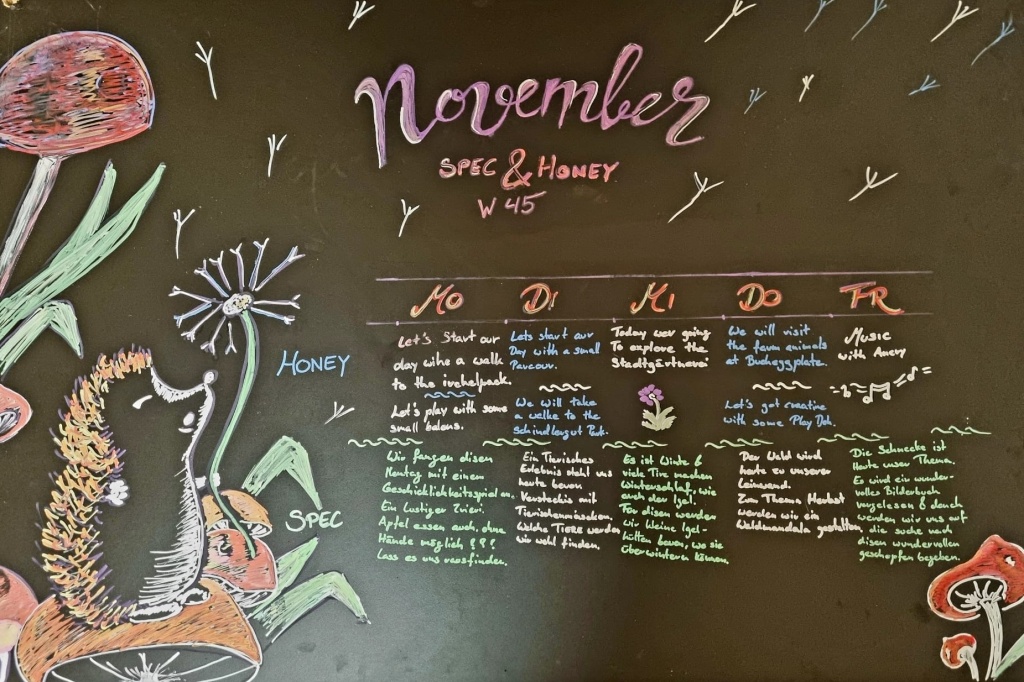 November
SPEC & HONEY
W 45
MO DI MI DO FR
HONEY
Let's Start our
day withe a walk
to the irchelpark.
Let's play with some
small balons.
Lets start our
Day with a small
Parcour.
We will take
a walke to the
Schindlergut Park.
Today wer going
To explore the
Stadtgärtnerei
We will visit
the farm animals
at Bucheggplatz.
Let's get creative
with some Play Doh.
Music
with Amery
SPEC
Wir fangen disen
Montag mit einem
Geschicklichkeitsspiel an.
Ein Lustiger Znüri.
Apfel essen auch, ohne
Hände möglich ???
Lass es uns rausfinden.
Ein Tierisches
Erlebnis steht uns
heute bevor.
Versteckis mit
Tierischenmasken.
Welche TIERE werden
wir wohl finden.
Es ist Winter &
viele Tire machen
Winterschlaf, wie
auch der Igel.
Für disen werden
wir kleine Igel-
hütten bauen, wo sie
überwintern können.
Der Wald wird
heute zu unserer
Leinwand.
Zum Thema Herbst
werden wir ein
Waldmandala gestalten
Die Schnecke ist
Heute unser Thema.
Es wird ein wunder-
volles Bilderbuch
vorgelesen & danch
werden wir uns auf
die suche nach
disen wundervollen
geschopfen begeben.